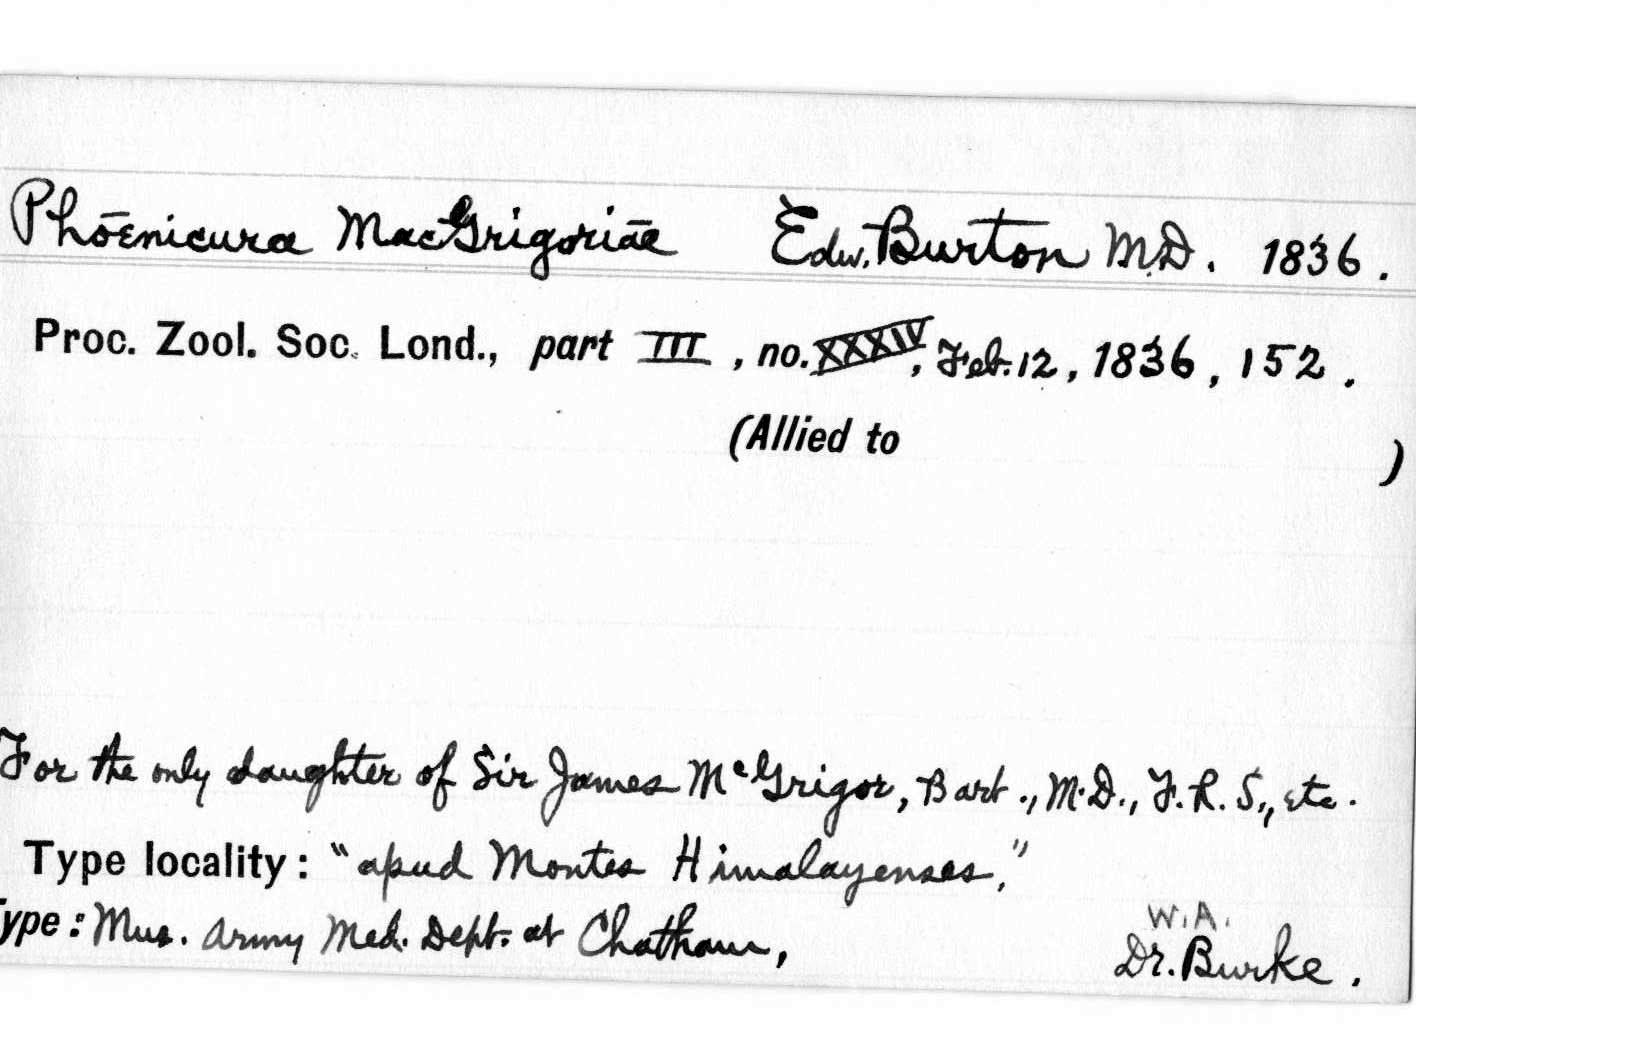 Phœnicura MacGrigoriæ Edw. Burton M.D. 1836.
Proc. Zool. Soc. Lond., part III, no. XXXIV, Feb. 12, 1836, 152.
(Allied to )
For the only daughter of Sir James McGrigor, Bart., M.D., F.R.S., etc.
Type locality: "apud Montes Himalayenses,"
Type: Mus. Army Med. Dept. at Chatham, W.A.
Dr. Burke.